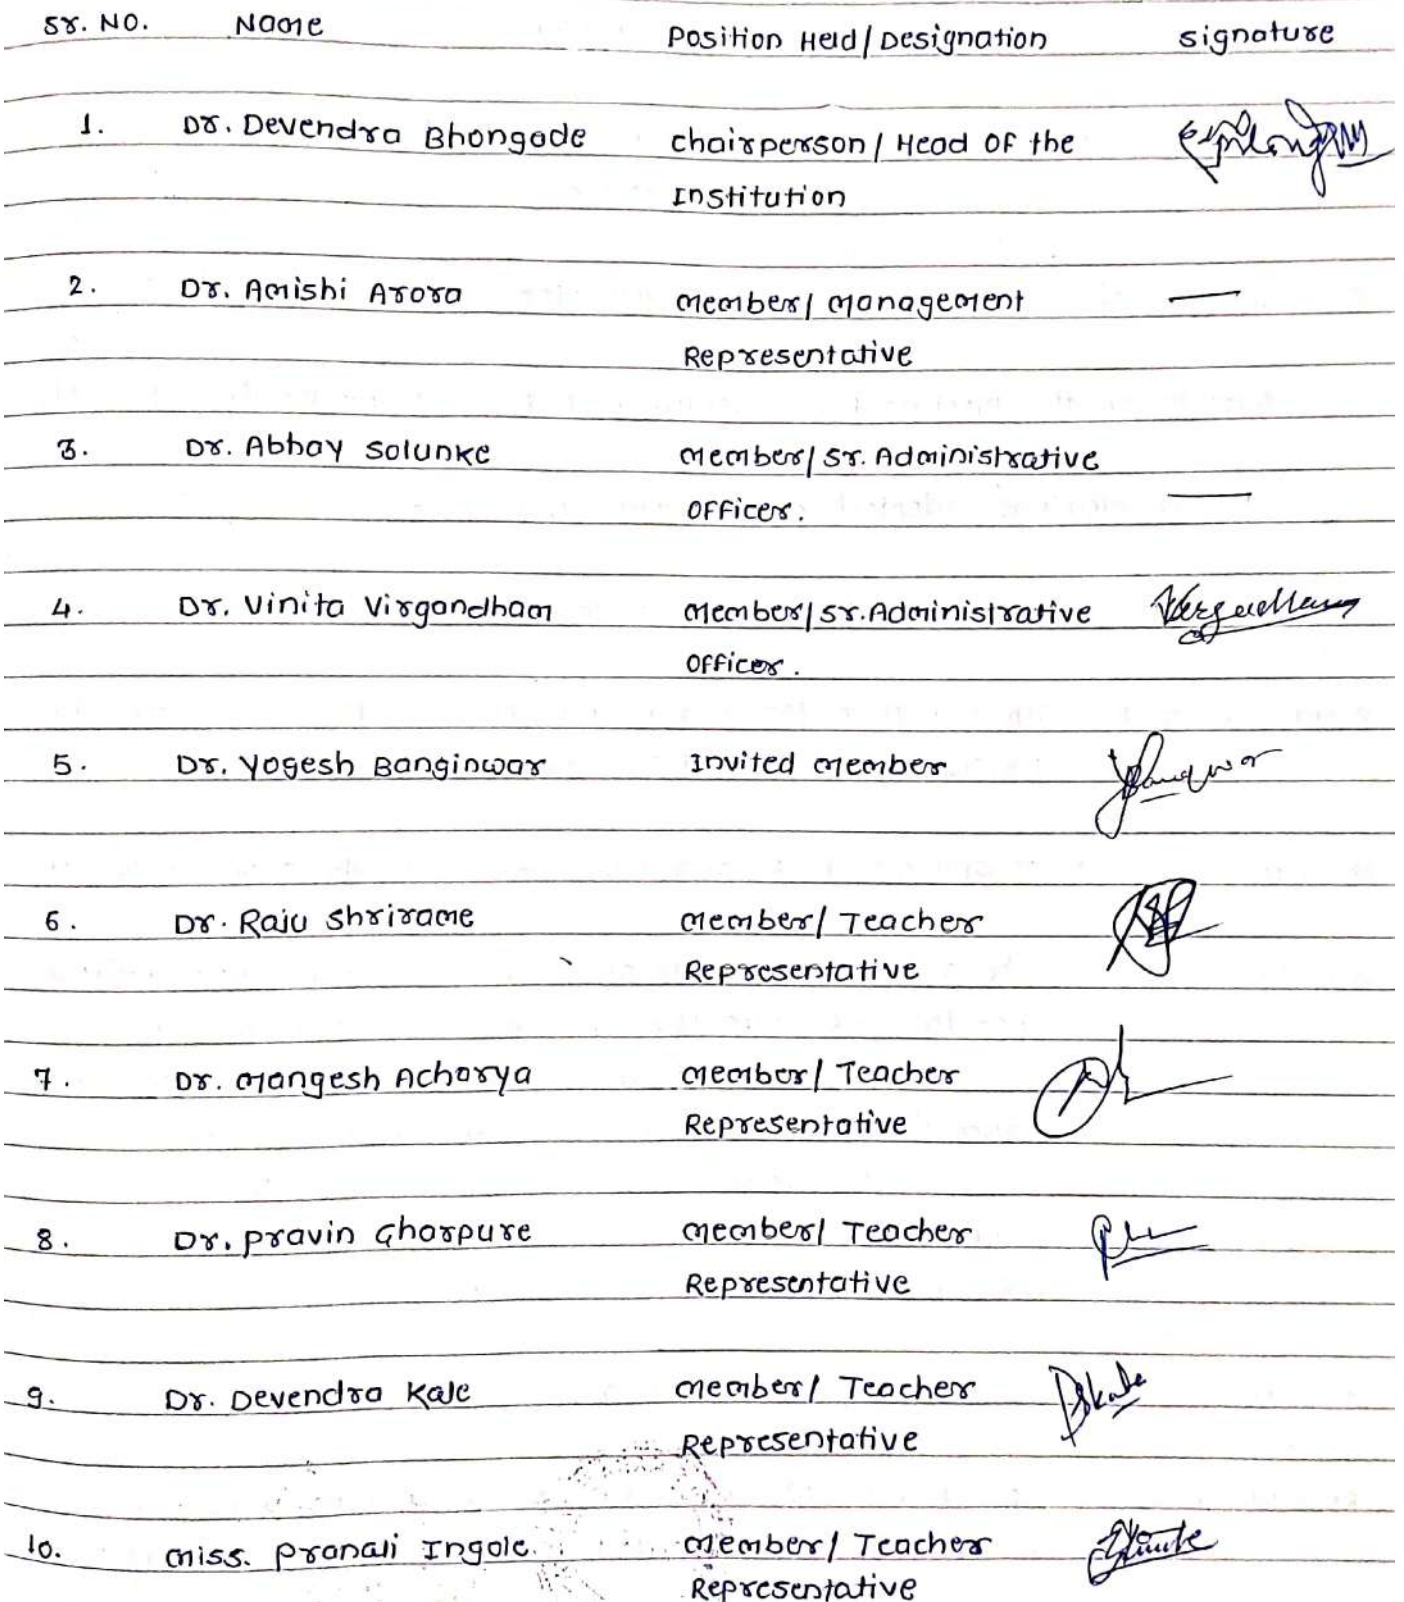 Sr. NO. Name Position Held/Designation signature
1. Dr. Devendra Bhongade chairperson/ Head OF the
Institution
2. Dr. Amishi Arora member/ management —
Representative
3. Dr. Abhay Solunke member/ Sr. Administrative
OFFicer. —
4. Dr. Vinita Virgandham member/ Sr. Administrative
OFFicer.
5. Dr. Yogesh Banginwar Invited member
6. Dr. Raju Shrirame member/ Teacher
Representative
7. Dr. Mangesh Acharya member/ Teacher
Representative
8. Dr. Pravin Gharpure member/ Teacher
Representative
9. Dr. Devendra Kale member/ Teacher DSKale
Representative
10. miss. Pranali Ingole. member/ Teacher
Representative